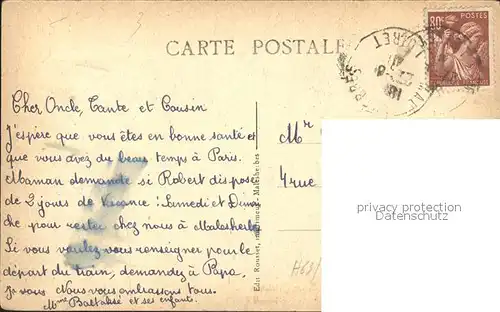 CARTE POSTALE
80c POSTES
LOIRET
Cher Oncle, Tante et Cousin
J'espère que vous êtes en bonne santé et
que vous avez du beau temps à Paris.
Maman demande si Robert dispose
de 2 jours de vacance : Samedi et Diman
che pour rester chez nous à Malesherbes
Si vous voulez vous renseigner pour le
départ du train, demandez à Papa.
je vous Nous vous embrassons tous.
Mme et ses enfants.
Edit. Roussier, imprimeur, Malesherbes
Mr
4 rue
privacy protection
Datenschutz